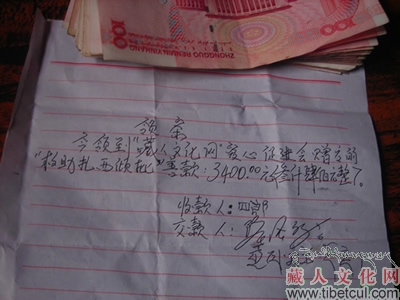 100
ZHONGGUO RENMIN YINHANG
领条
今领到"藏人文化网"爱心促进会赠发的
"救助扎西顿批"善款:3400.00元叁仟肆佰元整了。
收款人:
交款人:
藏人文化网
www.tibetcul.com